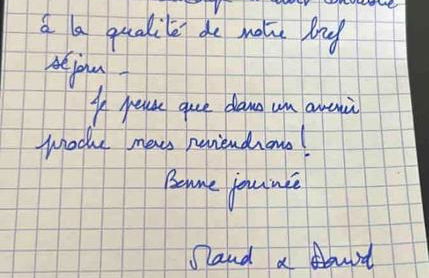 à la qualité de notre bref
séjour -
Je pense que dans un avenir
proche nous reviendrons !
Bonne journée
Maud & David